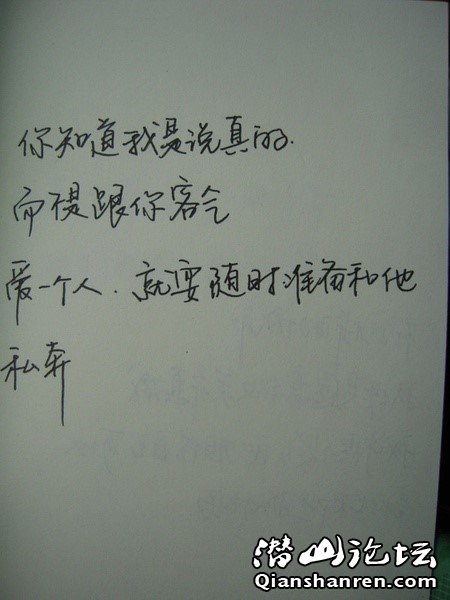 你知道我是说真的.
而不是跟你客气
爱一个人.就要随时准备和他
私奔
潜山论坛
Qianshanren.com